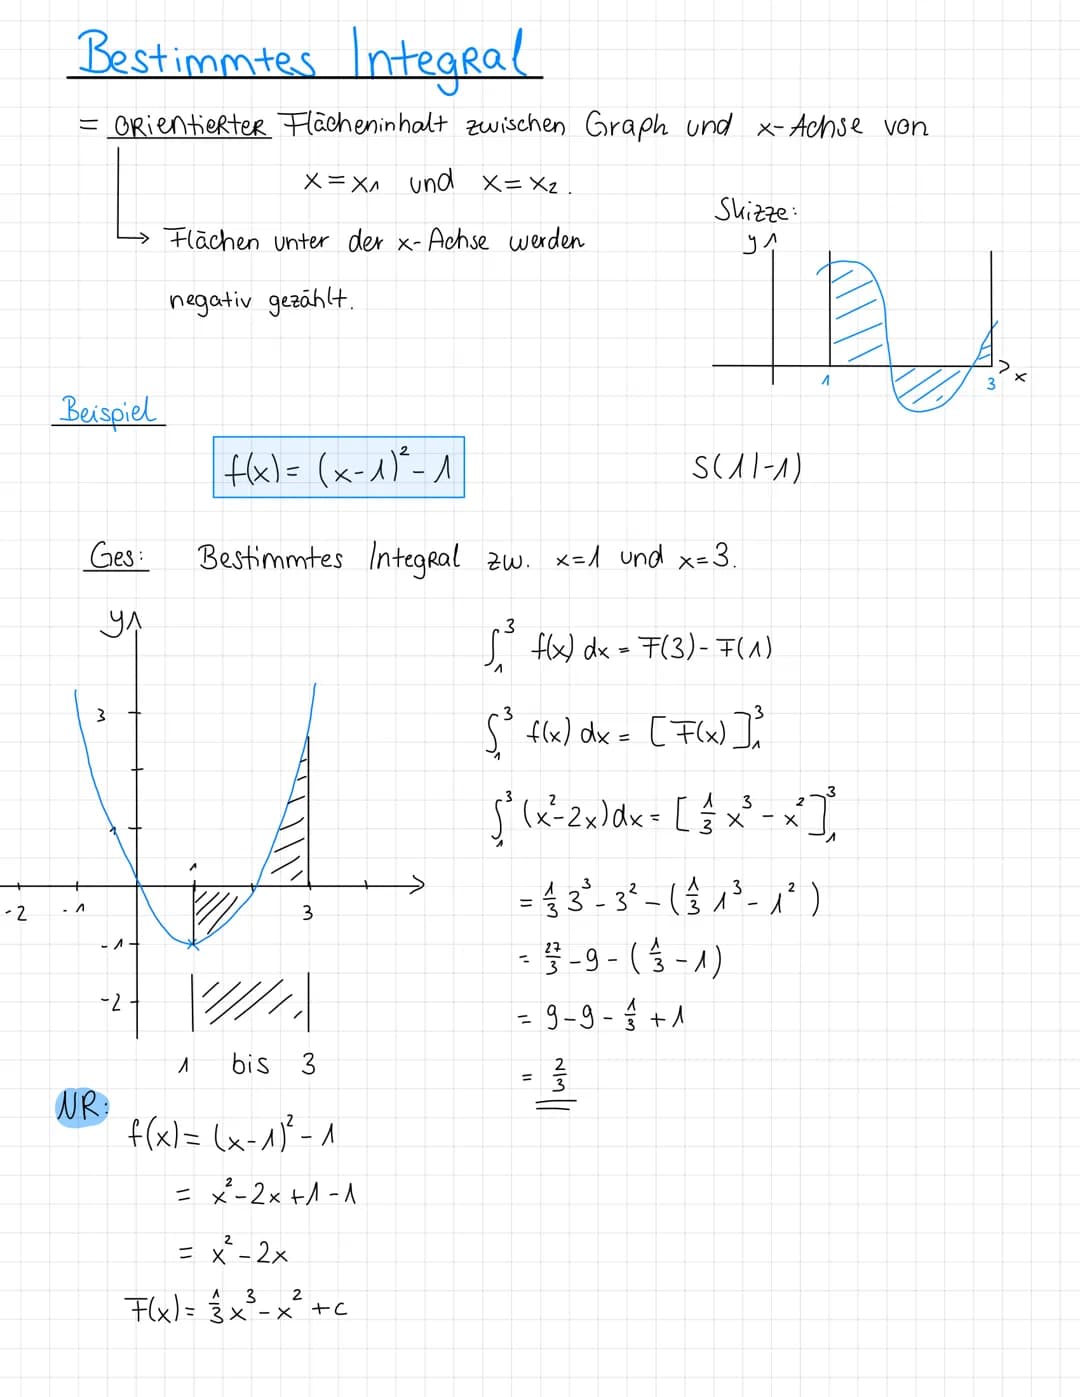 Bestimmtes Integral
= orientierter Flächeninhalt zwischen Graph und x-Achse von
x = x₁ und x = x₂.
Skizze:
→ Flächen unter der x-Achse werden
y
negativ gezählt.
1
3
x
Beispiel
f(x) = (x-1)² - 1
S(1|-1)
Ges: Bestimmtes Integral zw. x=1 und x=3.
y
3
1
1
-2 -1 3
-1
-2
1 bis 3
∫₁³ f(x) dx = F(3) - F(1)
∫₁³ f(x) dx = [F(x)]₁³
∫₁³ (x²-2x) dx = [1/3 x³ - x²]₁³
= 1/3 3³ - 3² - (1/3 1³ - 1²)
= 27/3 - 9 - (1/3 - 1)
= 9 - 9 - 1/3 + 1
= 2/3
NR:
f(x) = (x-1)² - 1
= x² - 2x + 1 - 1
= x² - 2x
F(x) = 1/3 x³ - x² + c